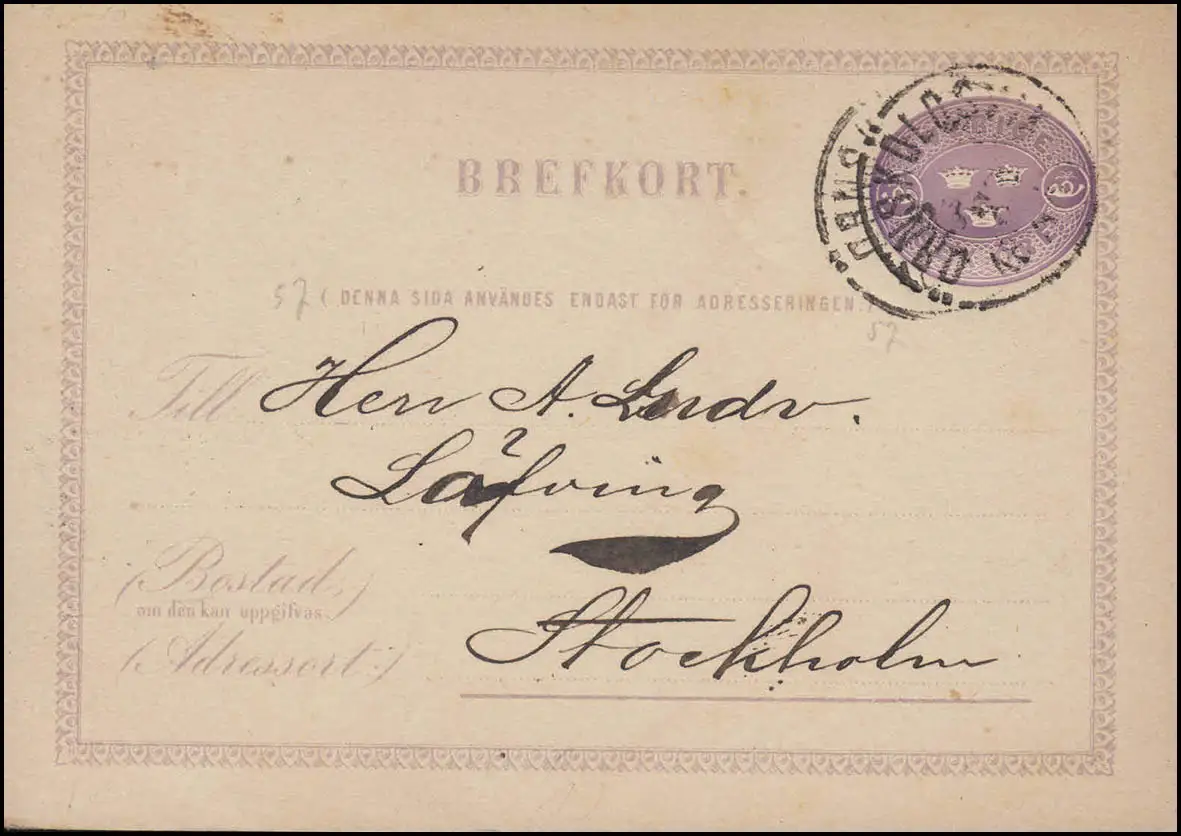 BREFKORT.
57 ( DENNA SIDA ANVÄNDES ENDAST FÖR ADRESSERINGEN.)
57
Till Herr A. Ludv.
Läfving
(Bostad,)
om den kan uppgifvas.
Stockholm
(Adressort:)